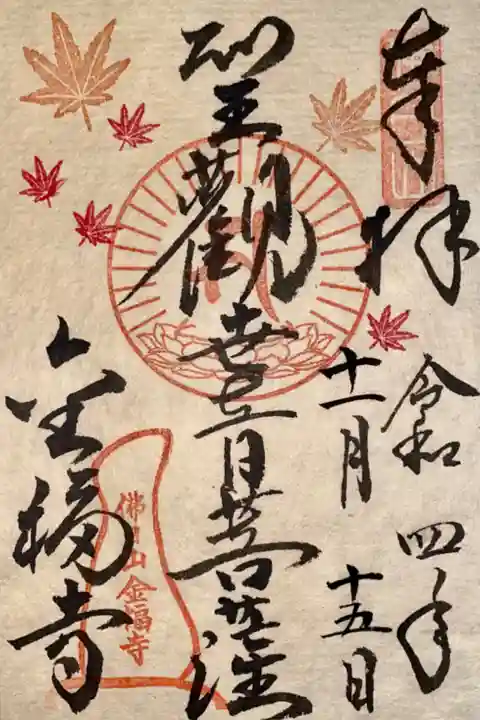 奉拝
令和四年
十一月十五日
聖観世音菩薩
金福寺
佛日山金福寺